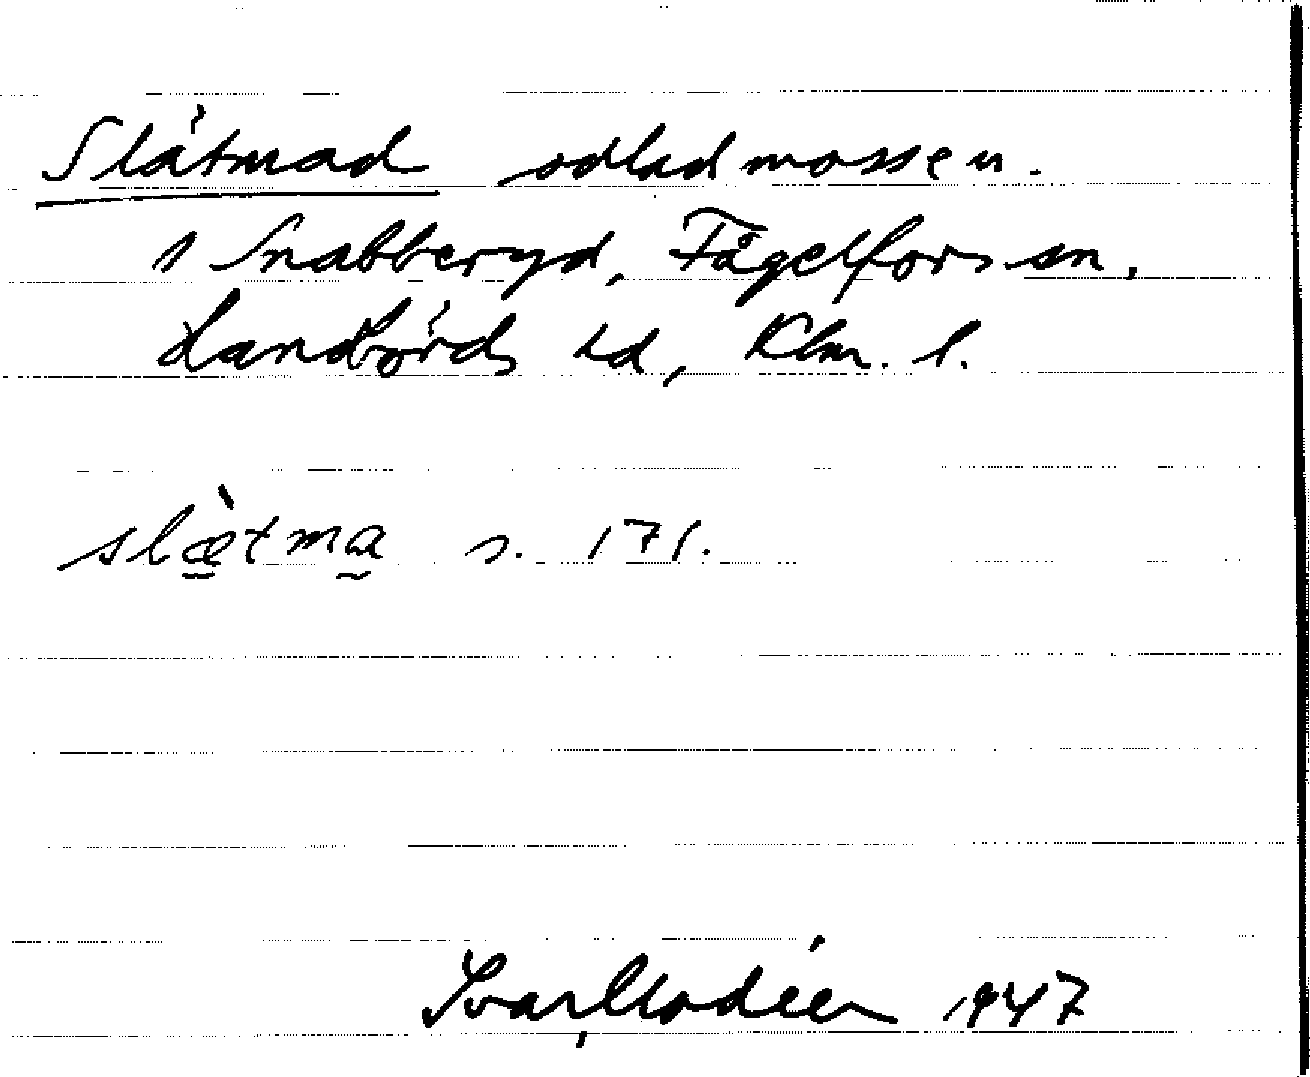 Slåtmad odlad mossen.
s Snabberyd, Fågelfors sn,
Landbjörds hd, Klm. l.
slæ̀tma s. 171.
Ivar Modéer 1947